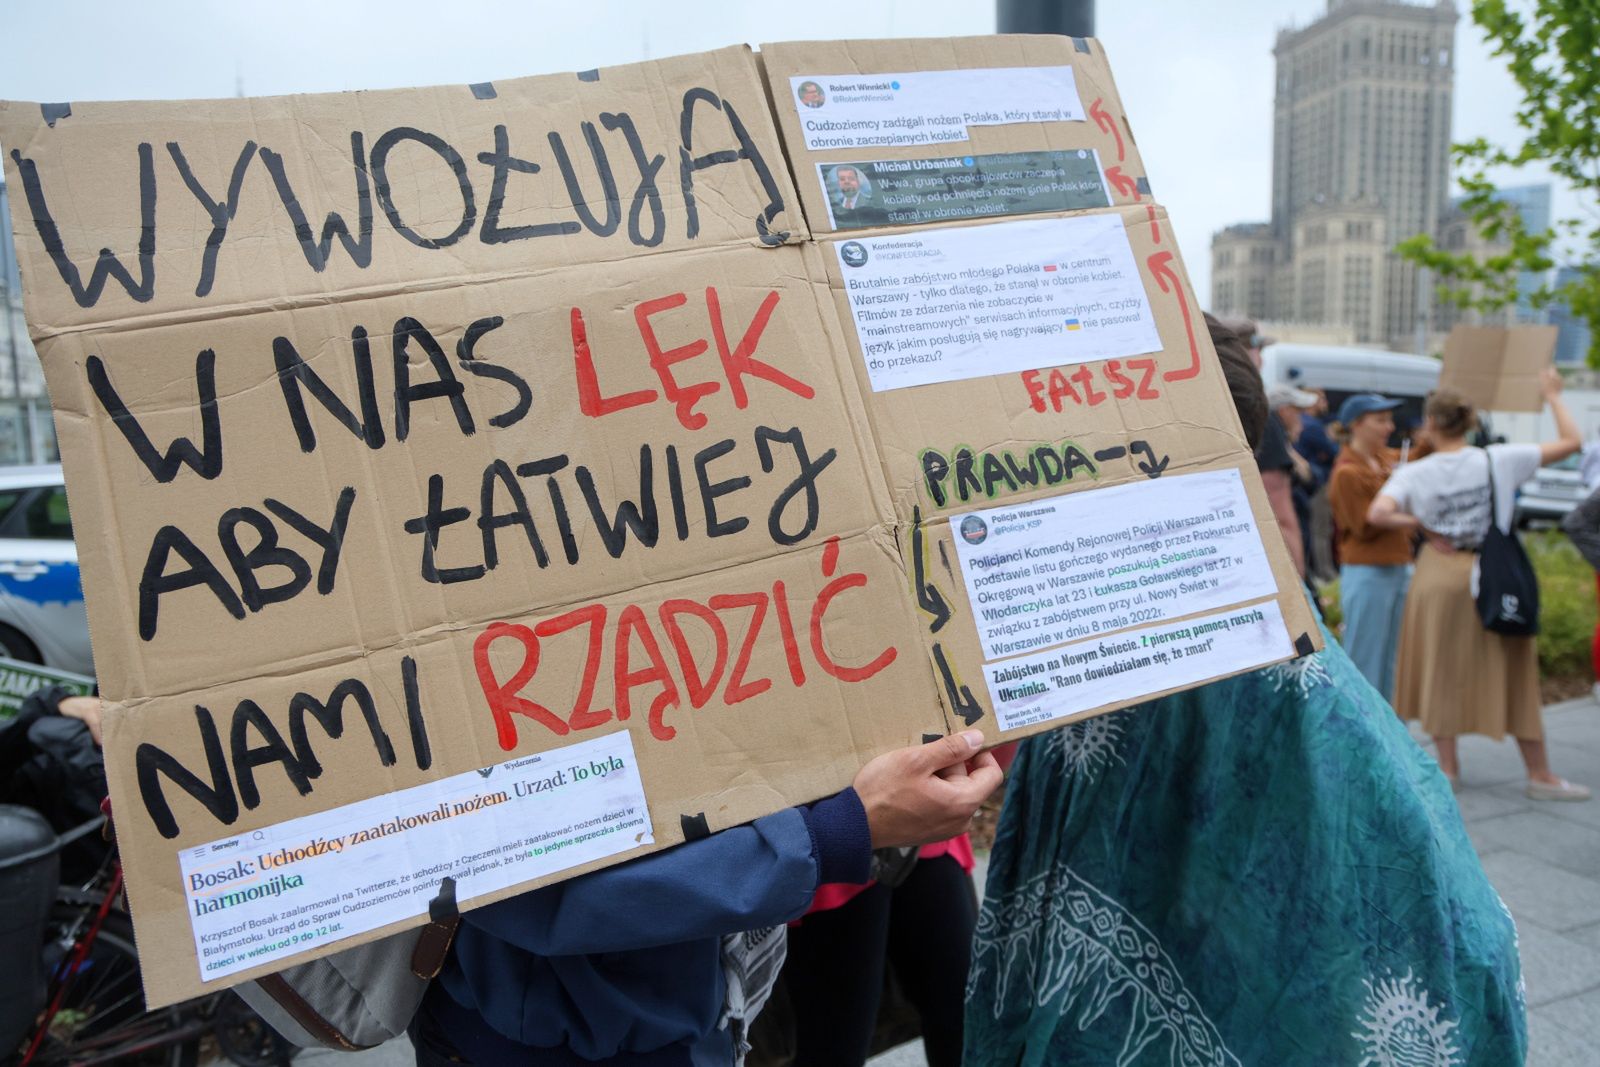 WYWOŁUJĄ
W NAS LĘK
ABY ŁATWIEJ
NAMI RZĄDZIĆ
Wydarzenia
Serwisy
Bosak: Uchodźcy zaatakowali nożem. Urząd: To była
harmonijka
Krzysztof Bosak zaalarmował na Twitterze, że uchodźcy z Czeczenii mieli zaatakować nożem dzieci w
Białymstoku. Urząd do Spraw Cudzoziemców poinformował jednak, że była to jedynie sprzeczka słowna
dzieci w wieku od 9 do 12 lat.
Robert Winnicki
@RobertWinnicki
Cudzoziemcy zadźgali nożem Polaka, który stanął w
obronie zaczepianych kobiet.
Michał Urbaniak @urbaniak
W-wa, grupa obcokrajowców zaczepia
kobiety, od pchnięcia nożem ginie Polak który
stanął w obronie kobiet.
Konfederacja
@KONFEDERACJA_
Brutalnie zabójstwo młodego Polaka 🇵🇱 w centrum
Warszawy - tylko dlatego, że stanął w obronie kobiet.
Filmów ze zdarzenia nie zobaczycie w
"mainstreamowych" serwisach informacyjnych, czyżby
język jakim posługują się nagrywający 🇺🇦 nie pasował
do przekazu?
FAŁSZ
PRAWDA
Policja Warszawa
@Policja_KSP
Policjanci Komendy Rejonowej Policji Warszawa I na
podstawie listu gończego wydanego przez Prokuraturę
Okręgową w Warszawie poszukują Sebastiana
Włodarczyka lat 23 i Łukasza Goławskiego lat 27 w
związku z zabójstwem przy ul. Nowy Świat w
Warszawie w dniu 8 maja 2022r.
Zabójstwo na Nowym Świecie. Z pierwszą pomocą ruszyła
Ukrainka. "Rano dowiedziałam się, że zmarł"
24 maja 2022, 18:54